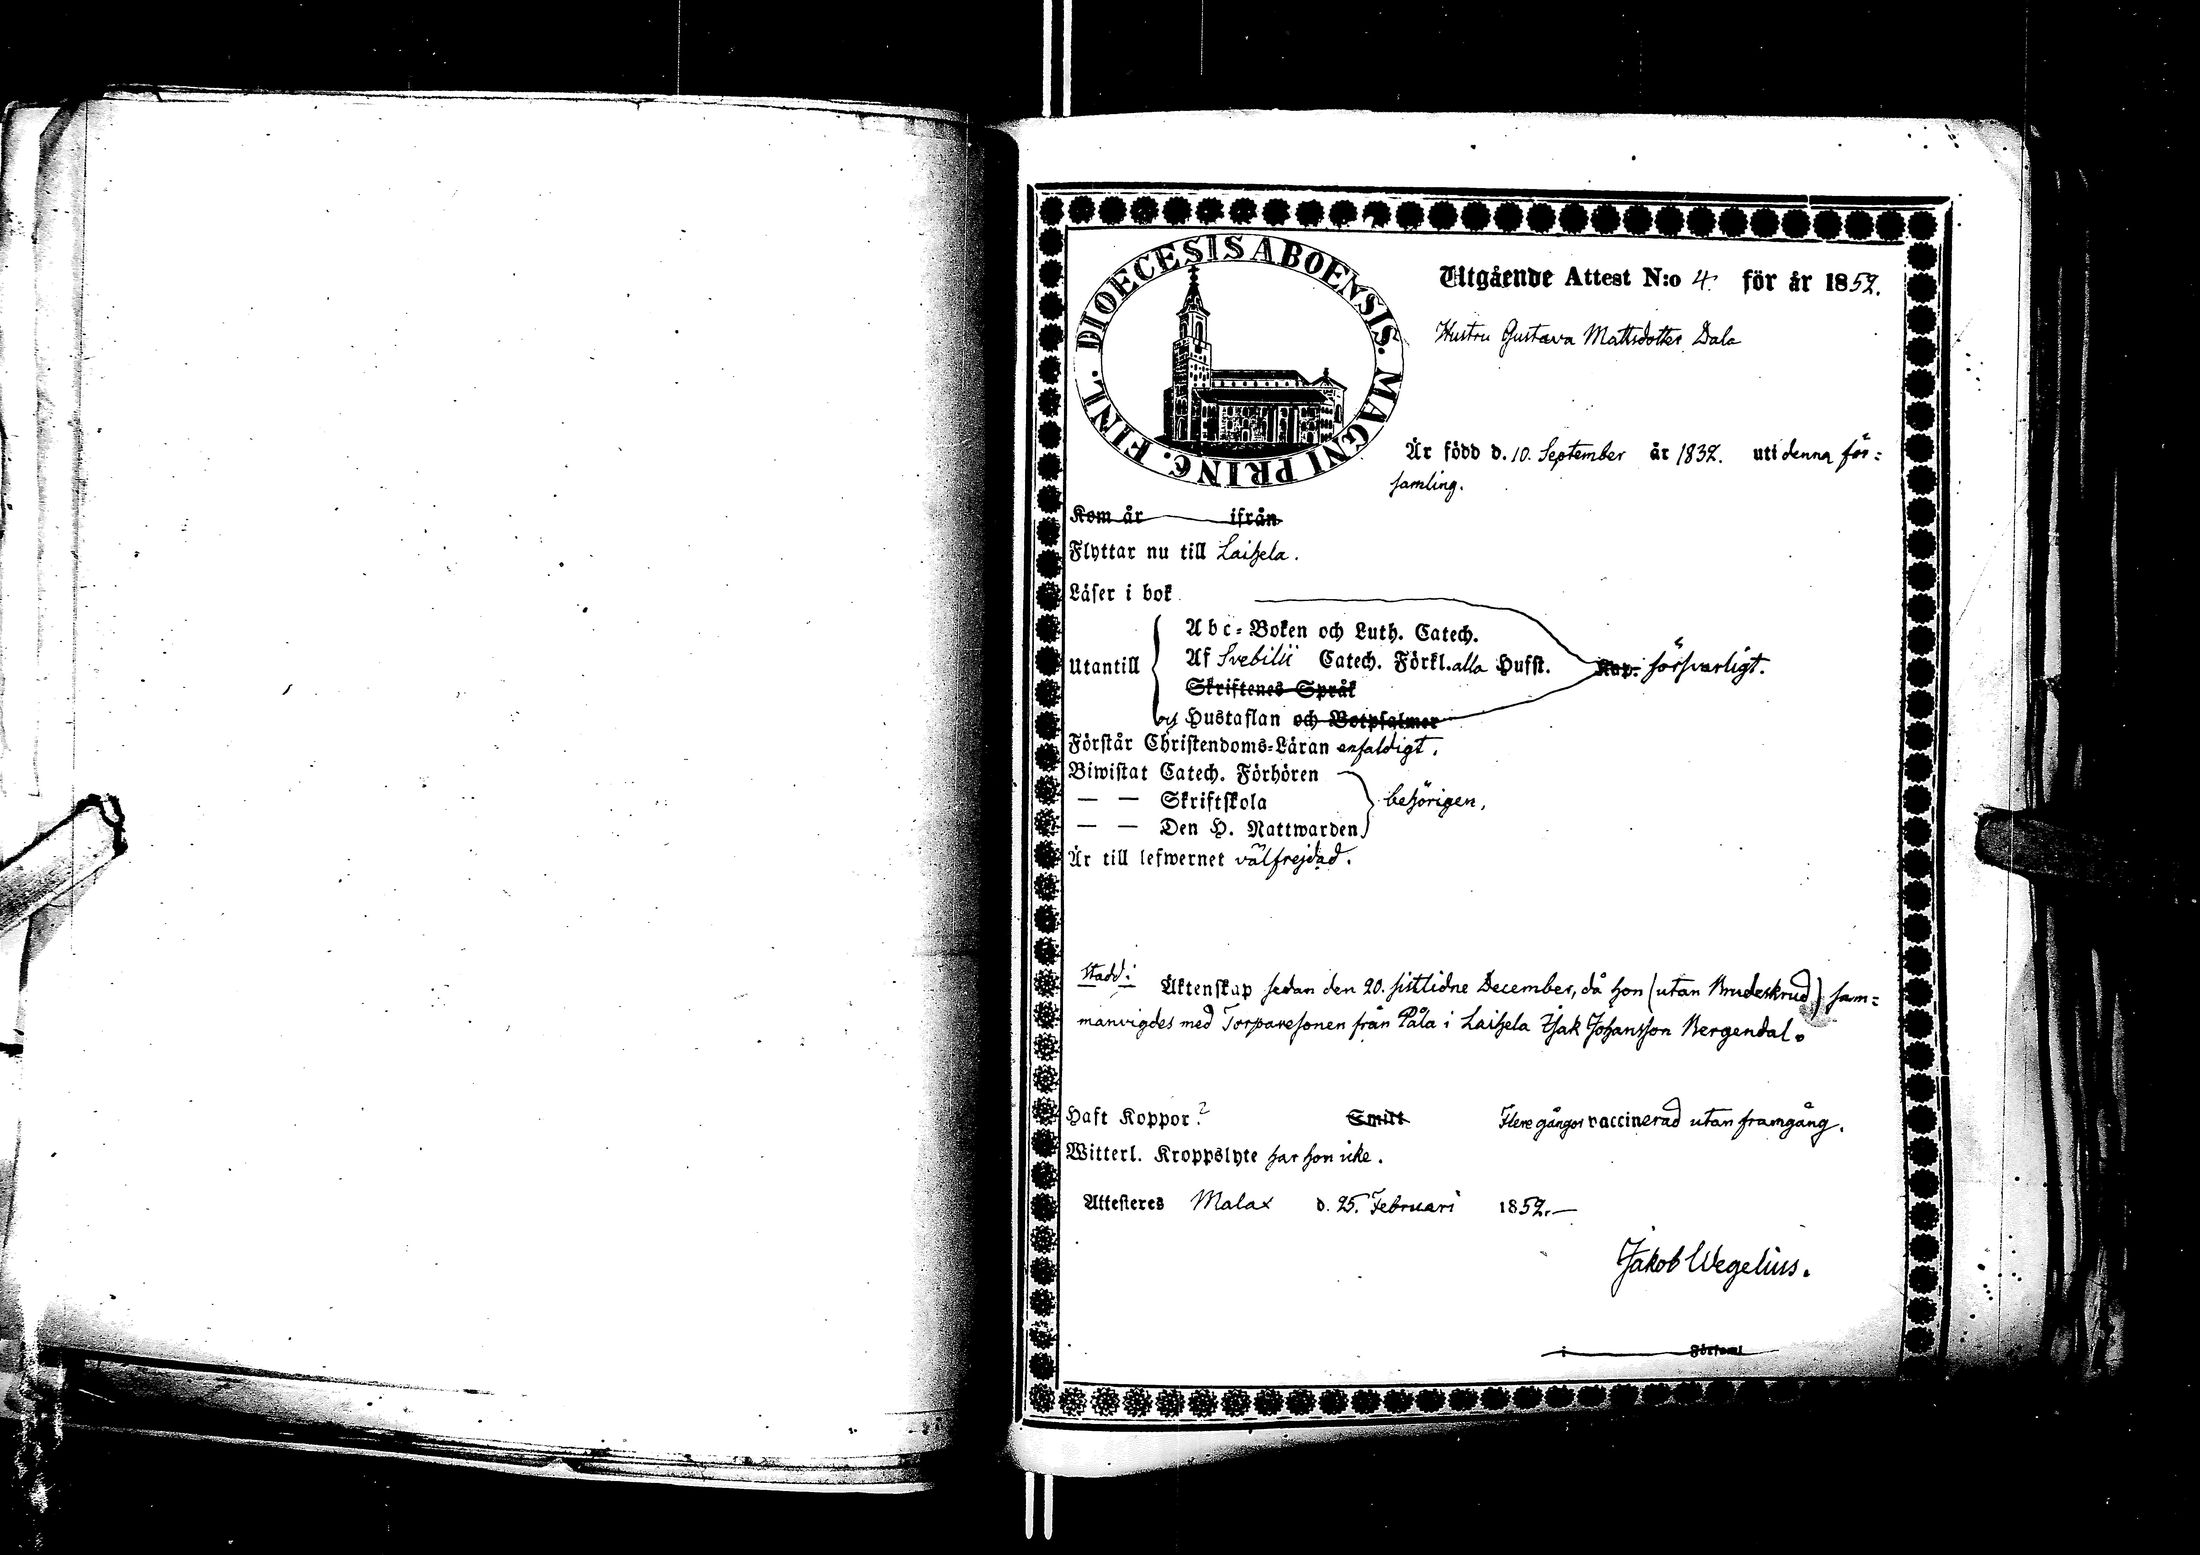 DIOECESIS ABOENSIS. MAGNI PRINC. FINL.
Utgående Attest N:o 4. för år 1852.
Hustru Gustava Mattsdotter Dala
Är född d. 10. September år 1832. uti denna för=
samling.
Kom år ifrån
Flyttar nu till Laihela.
Läser i bok
Abc=Boken och Luth. Catech.
Utantill Af Svebilii Catech. Förkl. alla Hufst. Kap. försvarligt.
Skriftenes Språk
och Hustaflan och Botpsalmer
Förstår Christendoms=Läran enfaldigt.
Biwistat Catech. Förhören
— — Skriftskola behörigen,
— — Den H. Nattwarden
Är till lefwernet välfrejdad.
stadd i Äktenskap sedan den 20. sistlidne December, då hon (utan Brudeskrud) sam=
manvigdes med Torparesonen från Påla i Laihela Isak Johansson Bergendal.
Haft Koppor? Smitt Flere gånger vaccinerad utan framgång.
Witterl. Kroppslyte har hon icke.
Attesteres Malax d. 25. Februari 1852.—
Jakob Wegelius.
i Församl